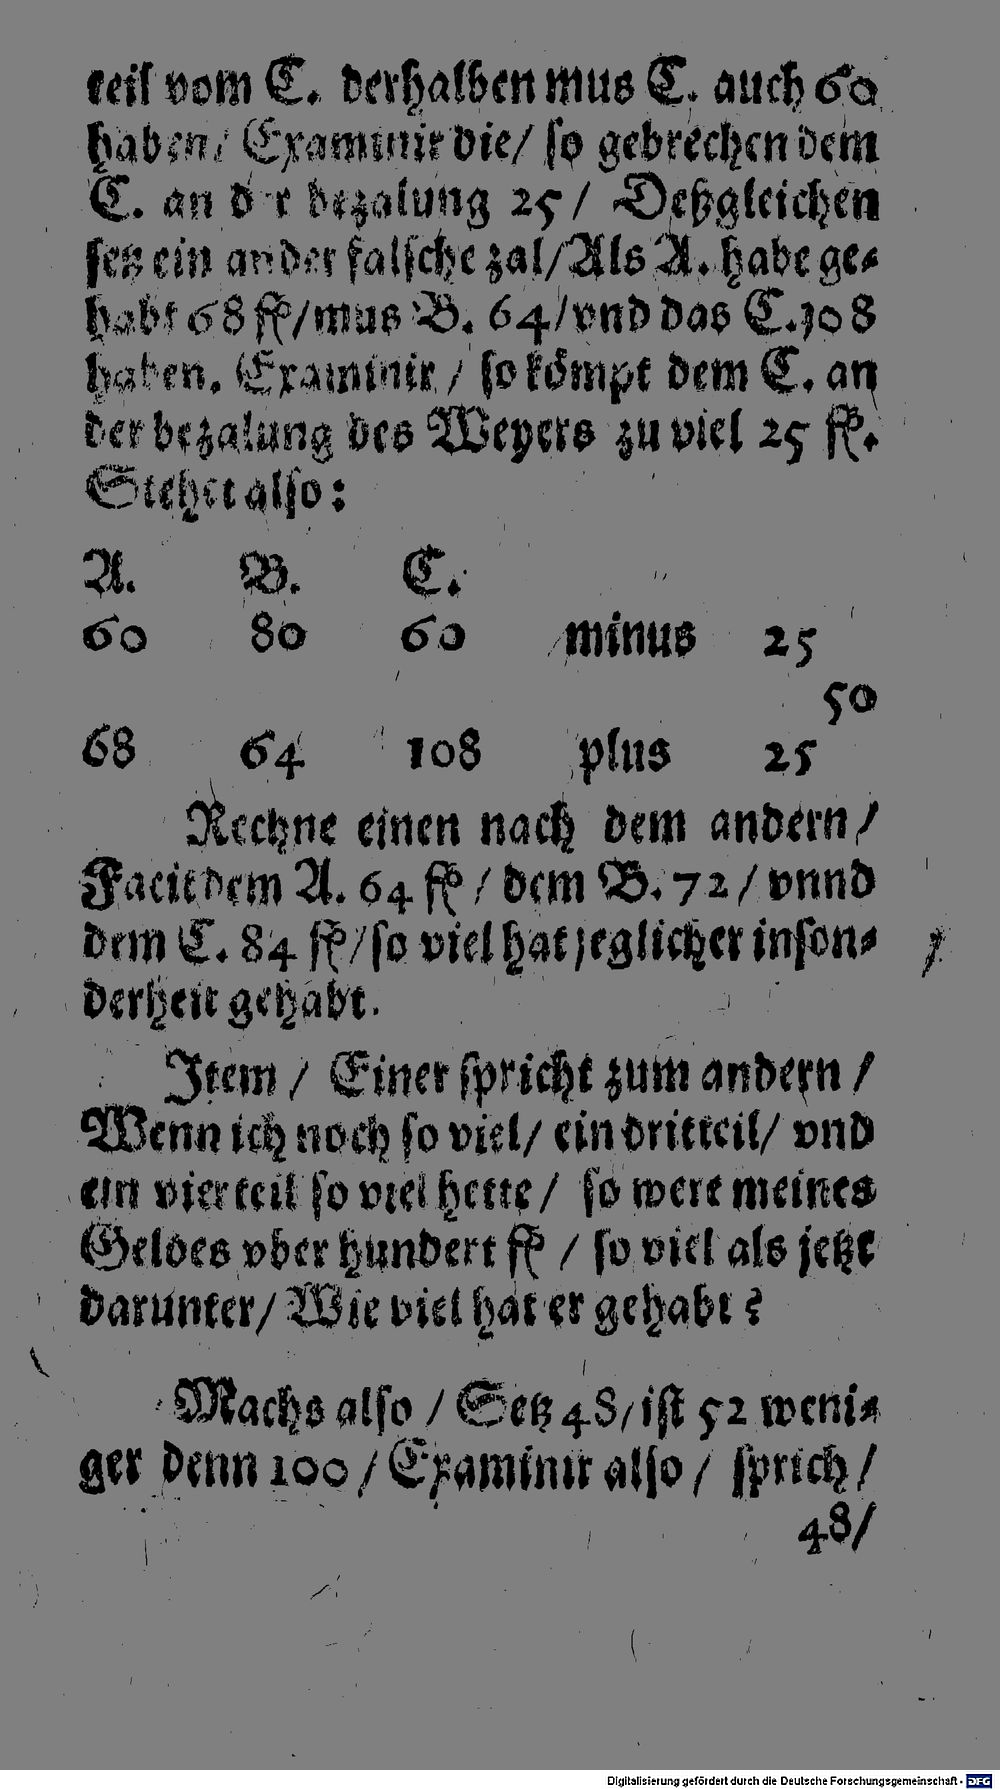 teil vom C. derhalben mus C. auch 60
haben/ Examinir die/ so gebrechen dem
C. an der bezalung 25/ Deßgleichen
setz ein ander falsche zal/Als A. habe ge-
habt 68 fl/mus B. 64/vnd das C.108
haben. Examinir/ so kömpt dem C. an
der bezalung des Weyers zu viel 25 fl.
Stehet also:
A. B. C.
60 80 60 minus 25
50
68 64 108 plus 25
Rechne einen nach dem andern/
Facit dem A. 64 fl/ dem B. 72/ vnnd
dem C. 84 fl/so viel hat jeglicher inson-
derheit gehabt.
Item/ Einer spricht zum andern/
Wenn ich noch so viel/ ein dritteil/ vnd
ein vierteil so viel hette/ so were meines
Geldes vber hundert fl/ so viel als jetzt
darunter/ Wie viel hat er gehabt?
Machs also/ Setz 48/ist 52 weni-
ger denn 100/Examinir also/ sprich/
48/
Digitalisierung gefördert durch die Deutsche Forschungsgemeinschaft - DFG